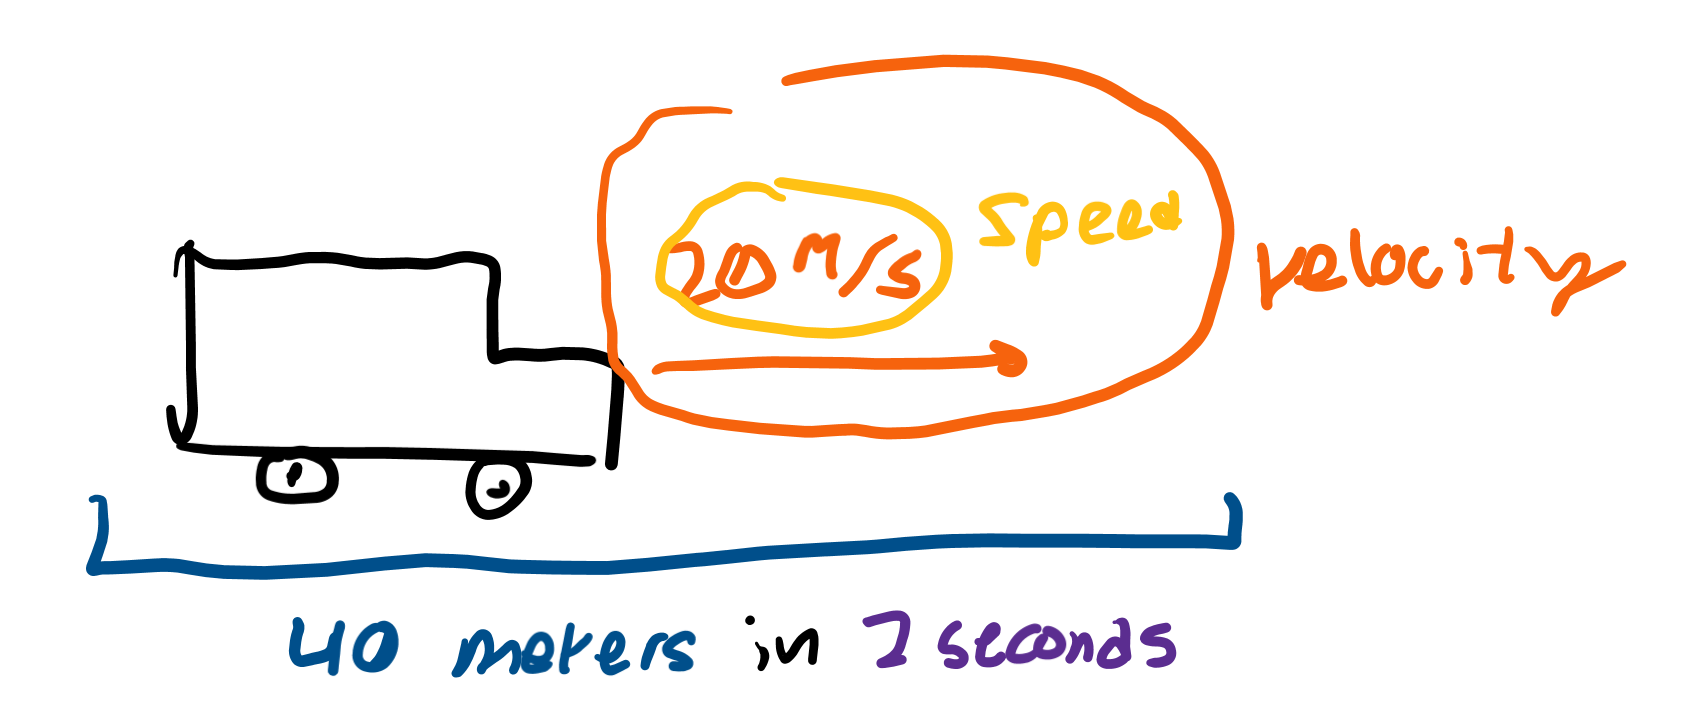 20 m/s
speed
velocity
40 meters in 2 seconds